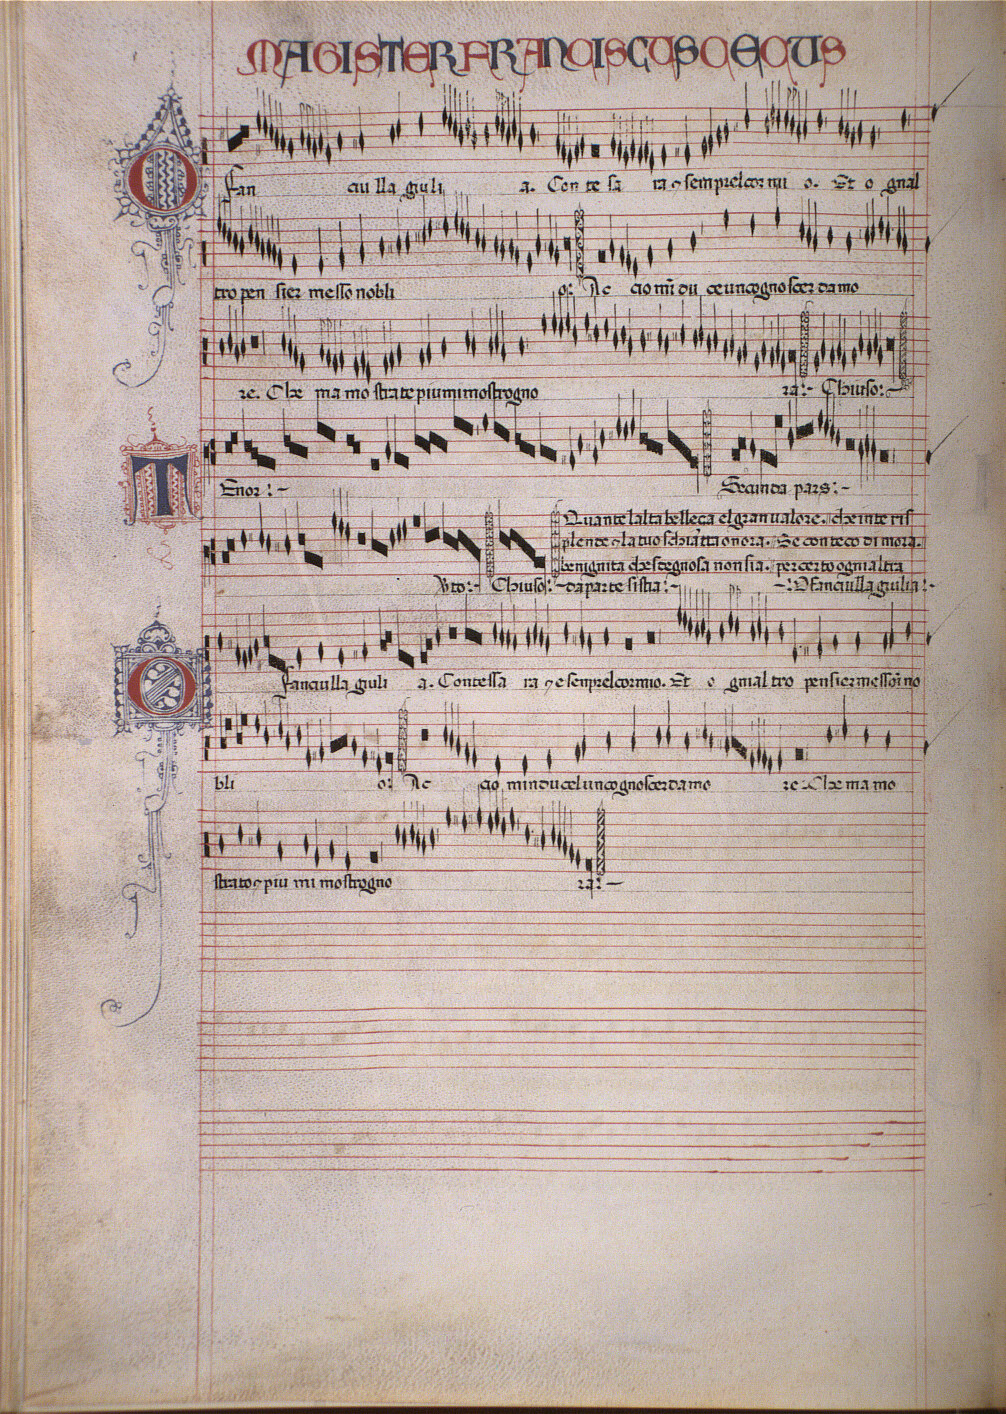 MAGISTER FRANCISCUS CECUS
O Fan ciu lla giuli a. Con te sa ra ⁊ semprelcor mi o. Et o gnal
tro pen sier messo nobli o: Ac cio mi du ce un cogno scer da mo
re. Che ma mo strate piu mi mostrogno ra:- Chiuso:-
TEnor:- Secunda pars:-
Quante lalta belleça el gran valore. che inte ris
plende ⁊ la tuo schiatta onora. Se con teco dimora.
benignita che sdegnosa non sia. per certo ogni altra
Vto:- Chiuso:- da parte si stia:- -: O Fanciulla giulia:-
O fanciulla giuli a. Contessa ra ⁊ e semprelcormio. Et o gnial tro pensier messo i no
bli o: Ac cio min du cel un cognoscer da mo re:- Che ma mo
strato ⁊ piu mi mostrogno ra:-